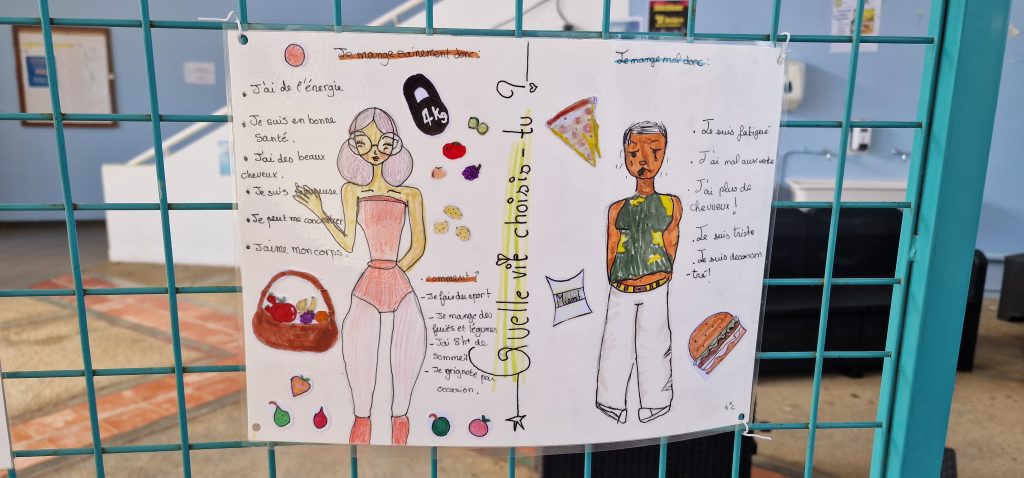 Je mange sainement donc:
• J'ai de l'énergie
• Je suis en bonne
santé.
• J'ai des beaux
cheveux.
• Je suis
• Je peut me concentrer
• J'aime mon corps.
4kg
. comment ?
- Je fais du sport
- Je mange des
fruits et légumes
- J'ai 8h de
sommeil
- Je grignote par
occasion.
Quelle vie choisis-tu ?
Je mange mal donc:
• Je suis fatigué
• J'ai mal aux ventre
• J'ai plus de
cheveux!
• Je suis triste
• Je suis deconcen
-tré!
4°C